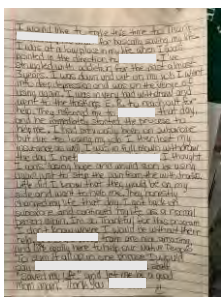 I would like to take this time to thank
for basically saving my life.
I was at a low place in my life when I was
pointed in the direction by
Struggled with addiction for the past almost
3 years. I was down and out on my job I went
into deep depression and was on the verge of
using again. I was in very bad withdraw and
went to the hospital E.R. to reach out for
help. They referred me to that day
and he immediately started the process to
help me. I had previously been on suboxone
but due to losing my job I then lost my
insurance as well. I was in full blown withdraw
the day I met I thought
I was losing hope and would soon be using
again just to stop the pain from the withdrawals
Little did I know that they would be on my
side and want to help me. They honestly
changed my life that day. I got back on
suboxone and continued my life as a normal
person again. I'm so thankful for this program
I don't know where I would be without their
help. team are our amazing
and truly care to help our Native People
to sum it all up in one sentence I would
say
saved my life and let me be a good
mom again. Thank you